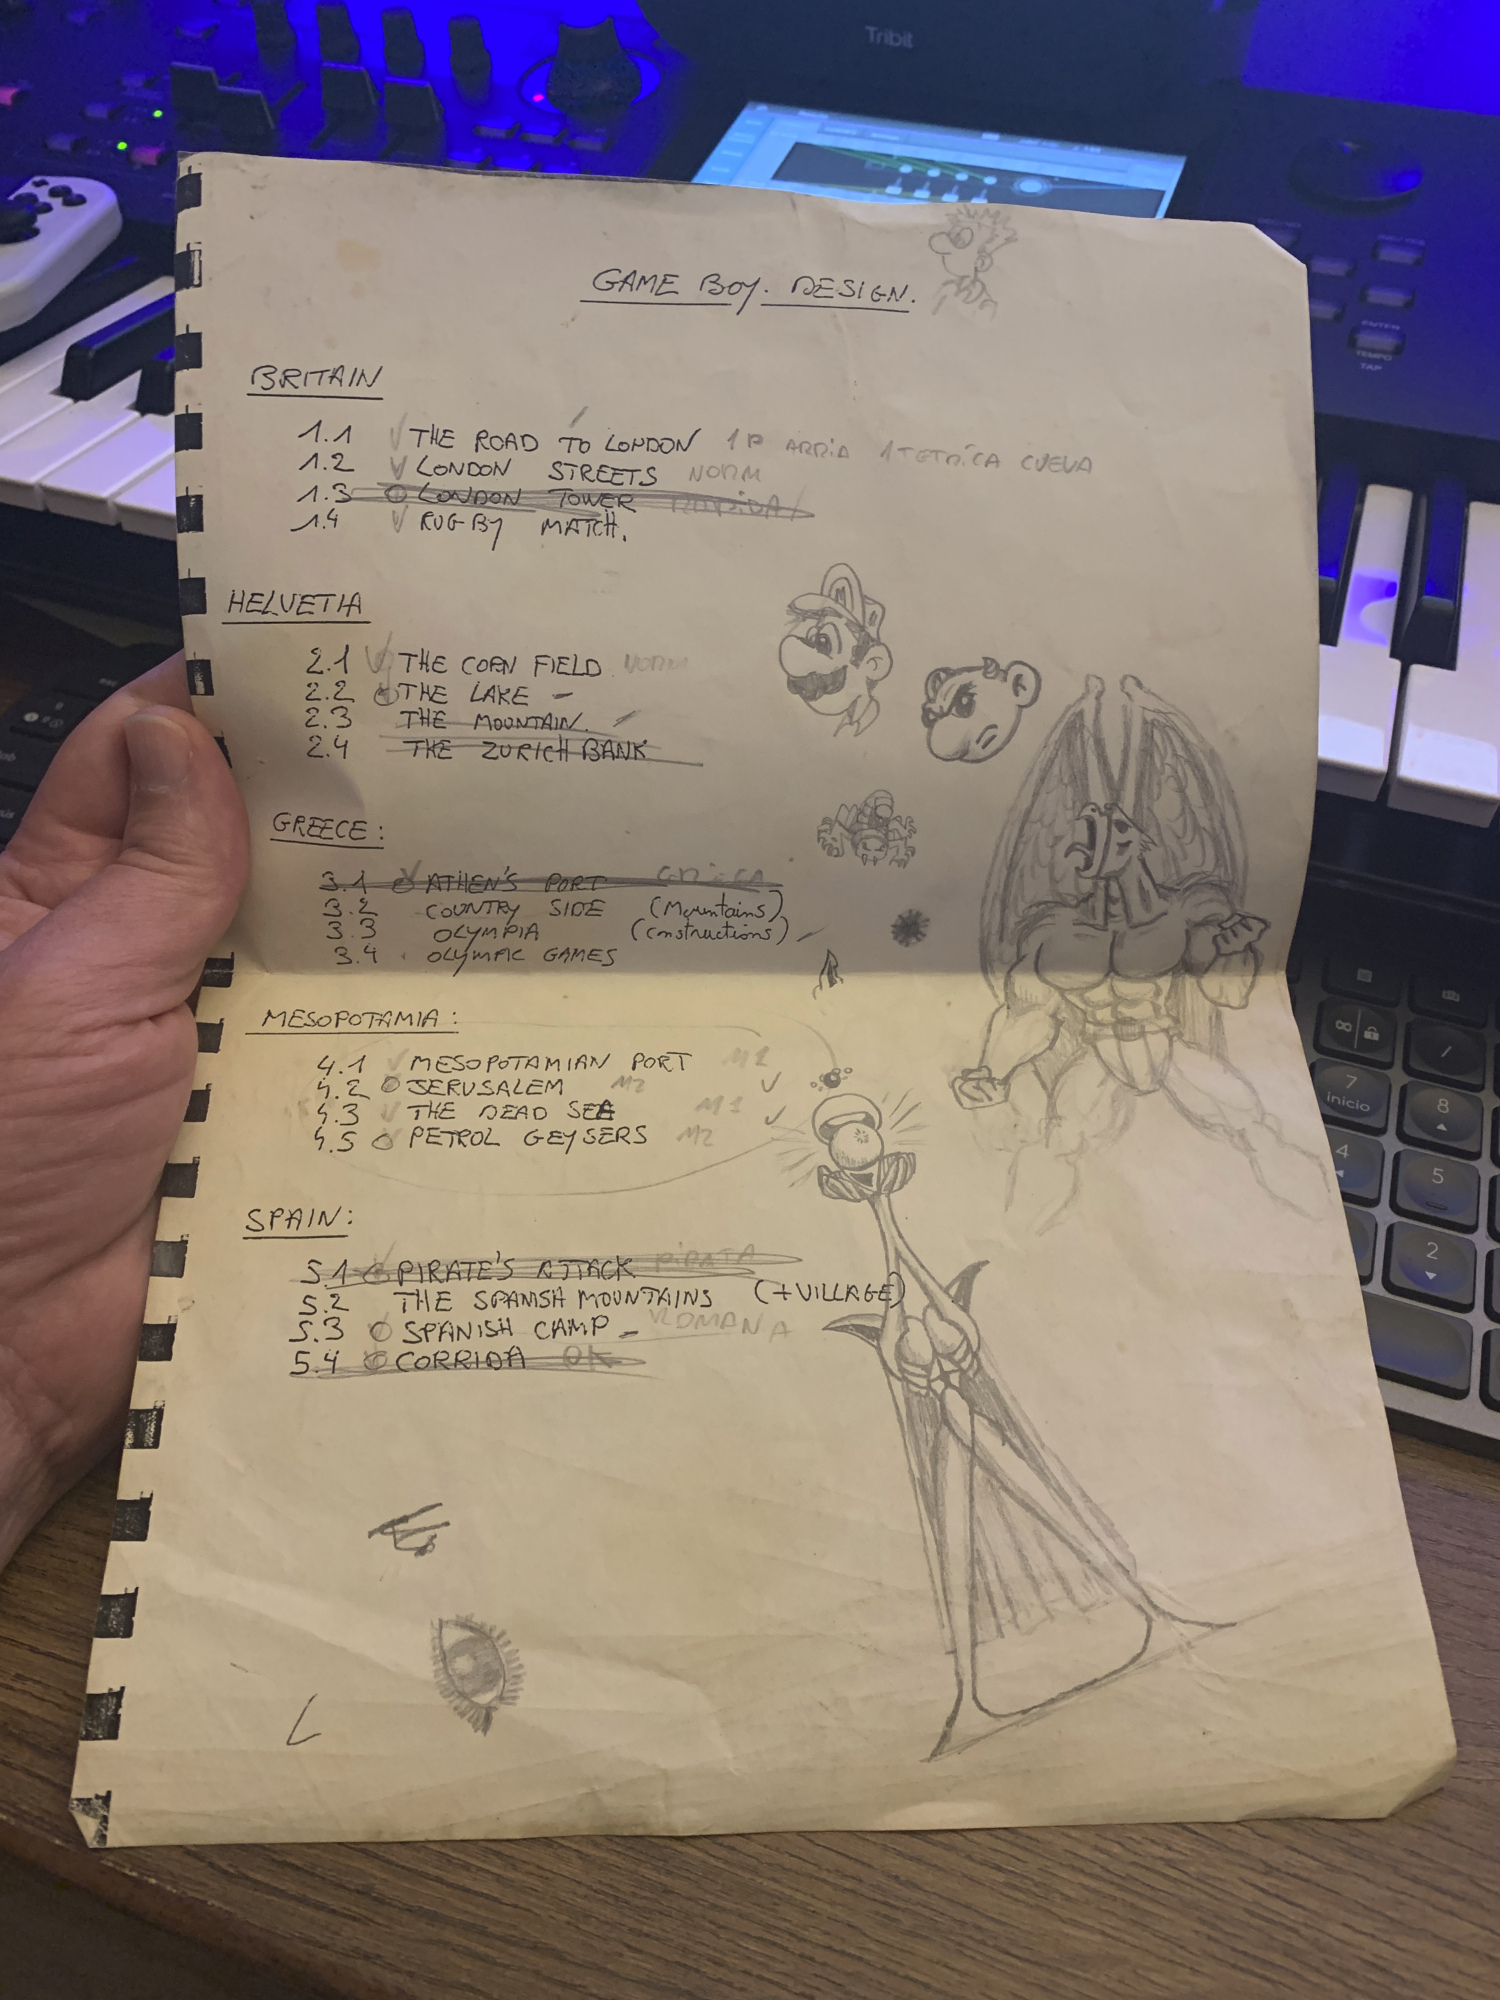 Tribit
ENTER
TEMPO
TAP
GAME BOY. DESIGN.
BRITAIN
1.1 THE ROAD TO LONDON 1P ARRIA 1 TETRICA CUEVA
1.2 LONDON STREETS NORM
1.3 LONDON TOWER
1.4 RUGBY MATCH.
HELVETIA
2.1 THE CORN FIELD NORM
2.2 THE LAKE -
2.3 THE MOUNTAIN.
2.4 THE ZURICH BANK
GREECE:
3.1 ATHEN'S PORT GRIEGA
3.2 COUNTRY SIDE (Mountains)
3.3 OLYMPIA (constructions)
3.4 OLYMPIC GAMES
MESOPOTAMIA:
4.1 MESOPOTAMIAN PORT M1
4.2 JERUSALEM M2
4.3 THE DEAD SEA M1
4.5 PETROL GEYSERS M2
SPAIN:
5.1 PIRATE'S ATTACK PIRATA
5.2 THE SPANISH MOUNTAINS (+VILLAGE)
5.3 SPANISH CAMP - ROMANA
5.4 CORRIDA OK
M
7
inicio
8
4
5
2